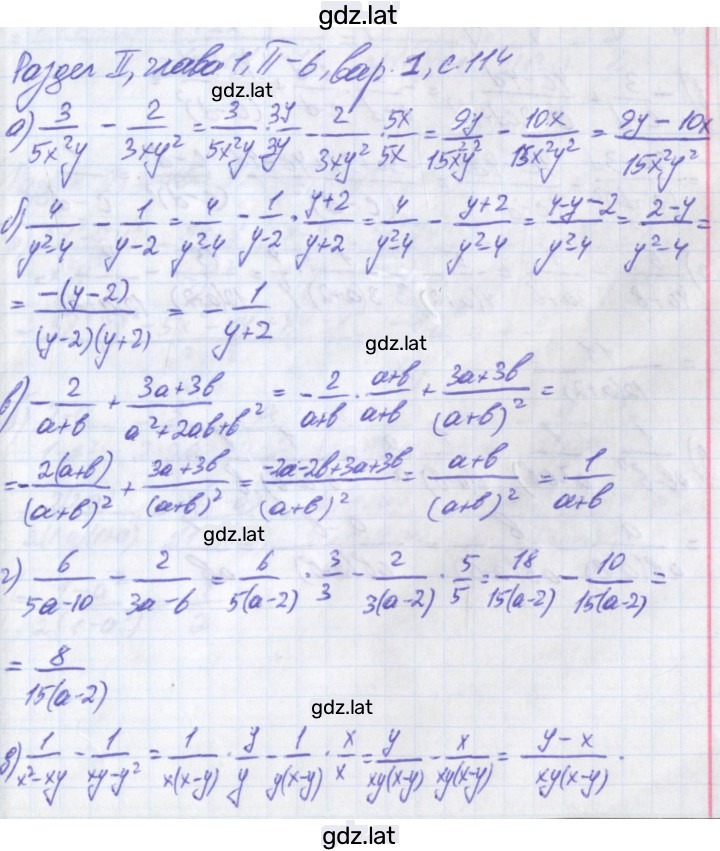 gdz.lat
Раздел II, глава 1, П-6, вар. 1, с. 114
gdz.lat
а) 3/(5x²y) − 2/(3xy²) = 3/(5x²y) · 3y/3y − 2/(3xy²) · 5x/5x = 9y/(15x²y²) − 10x/(15x²y²) = (9y − 10x)/(15x²y²)
б) 4/(y²−4) − 1/(y−2) = 4/(y²−4) − 1/(y−2) · (y+2)/(y+2) = 4/(y²−4) − (y+2)/(y²−4) = (4−y−2)/(y²−4) = (2−y)/(y²−4) =
= −(y−2)/((y−2)(y+2)) = − 1/(y+2)
gdz.lat
в) − 2/(a+b) + (3a+3b)/(a²+2ab+b²) = − 2/(a+b) · (a+b)/(a+b) + (3a+3b)/(a+b)² =
= − 2(a+b)/(a+b)² + (3a+3b)/(a+b)² = (−2a−2b+3a+3b)/(a+b)² = (a+b)/(a+b)² = 1/(a+b)
gdz.lat
г) 6/(5a−10) − 2/(3a−6) = 6/(5(a−2)) · 3/3 − 2/(3(a−2)) · 5/5 = 18/(15(a−2)) − 10/(15(a−2)) =
= 8/(15(a−2))
gdz.lat
д) 1/(x²−xy) − 1/(xy−y²) = 1/(x(x−y)) · y/y − 1/(y(x−y)) · x/x = y/(xy(x−y)) − x/(xy(x−y)) = (y−x)/(xy(x−y)) .
gdz.lat